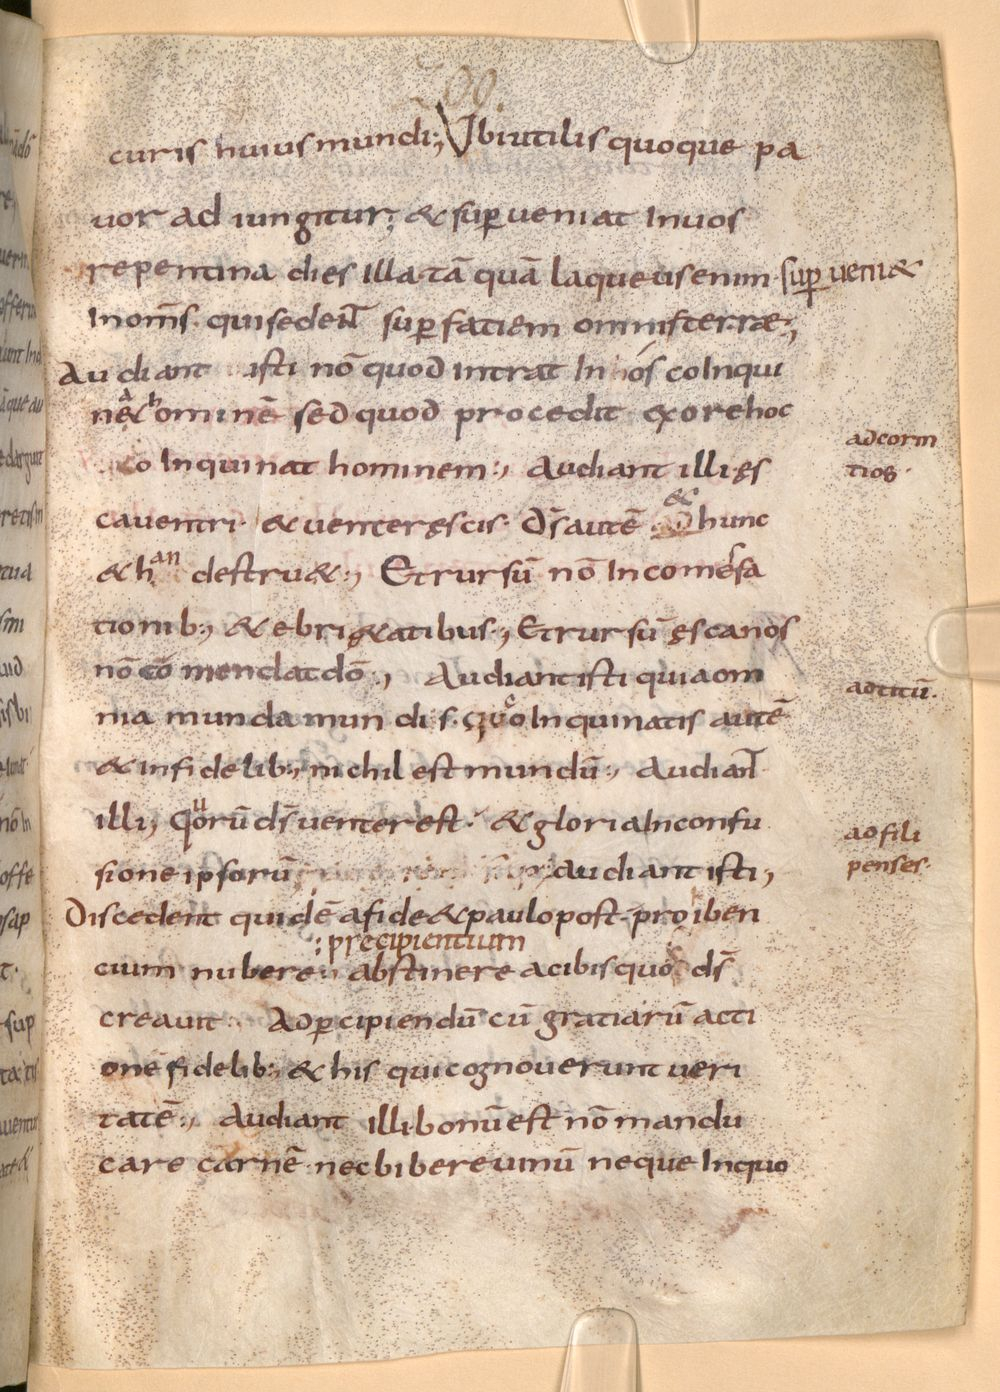 209.
curis huius mundi; Vbi utilis quoque pa
uor ad iungitur; & sup̄ueniat In uos
repentina dies illa tā quā laqueus enim sup̄ueni&
In om̄s. qui seden̄t sup̄ fatiem omnis terrae;,
Audiant isti nō quod intrat In ós coInqui
n& hominē sed quod procedit ex ore hoc
coInquinat hominem;, Audiant illi ęs
ca uentri. & uenter ęscis. Ds̄ autē & hunc
& han destru&;, Et rursū nō In comersa
tionib;, & ebri&atibus;, Et rursū ęsca nos
nō cō mendat dō;, Audiant isti quia om
nia munda mundis. Inquinatis autē
& infidelib;, nichil est mundū;, Audian̄t
illi, Quorū ds̄ uenter est. & gloria In confu
sione ipsorū audiant isti,
Discedent quidē a fide & paulo post. prohiben
:precipientium
cium nubere;, abstinere a cibis quos ds̄
creauit;, Ad p̄cipiendū cū gratiarū acti
one fidelib;, & his qui cognouerunt ueri
tatē;, Audiant illi. bonū est nō mandu
care carnē. nec bibere uinū neque In quo
ad corin
tios.
ad titū.
ao fili
penses.